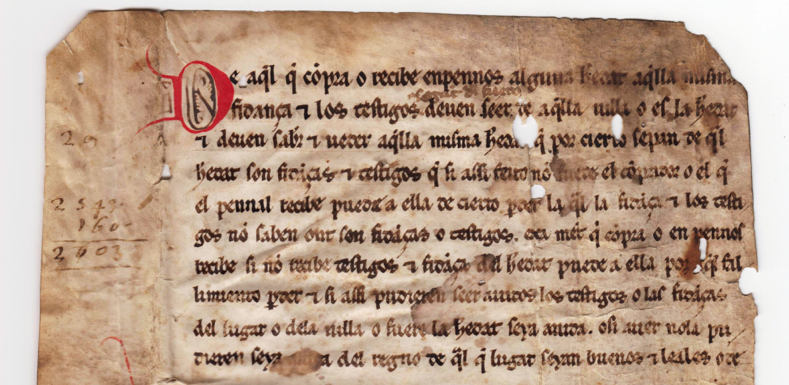 De aq̃l q̃ cõpra o recibe enpennos alguna hedat aq̃lla misma
fidança ⁊ los testigos deuen seer de aq̃lla uilla o es la hedat
⁊ deuen sabr ⁊ ueder aq̃lla misma hedat q̃ por cierto sepan de q̃l
hedat son fidãças ⁊ testigos q̃ si assi feito nõ fuere el cõprador o el q̃
el pennal recibe puede a ella de cierto perder la q̃l la fidãça ⁊ los testi
gos nõ saben ont son fidãças o testigos. q̃ cõpra o en pennos
recibe si nõ recibe testigos ⁊ fidãça del hedat puede a ella por q̃l fal
limiento perder ⁊ si assi pudieren seer auidos los testigos o las fidãças
del lugar o dela uilla o fuere la hedat seya auida. o si auer nola pu
dieren seya del regno de q̃l q̃ lugar seyan buenos ⁊ leales o de
29
2542
160
2603